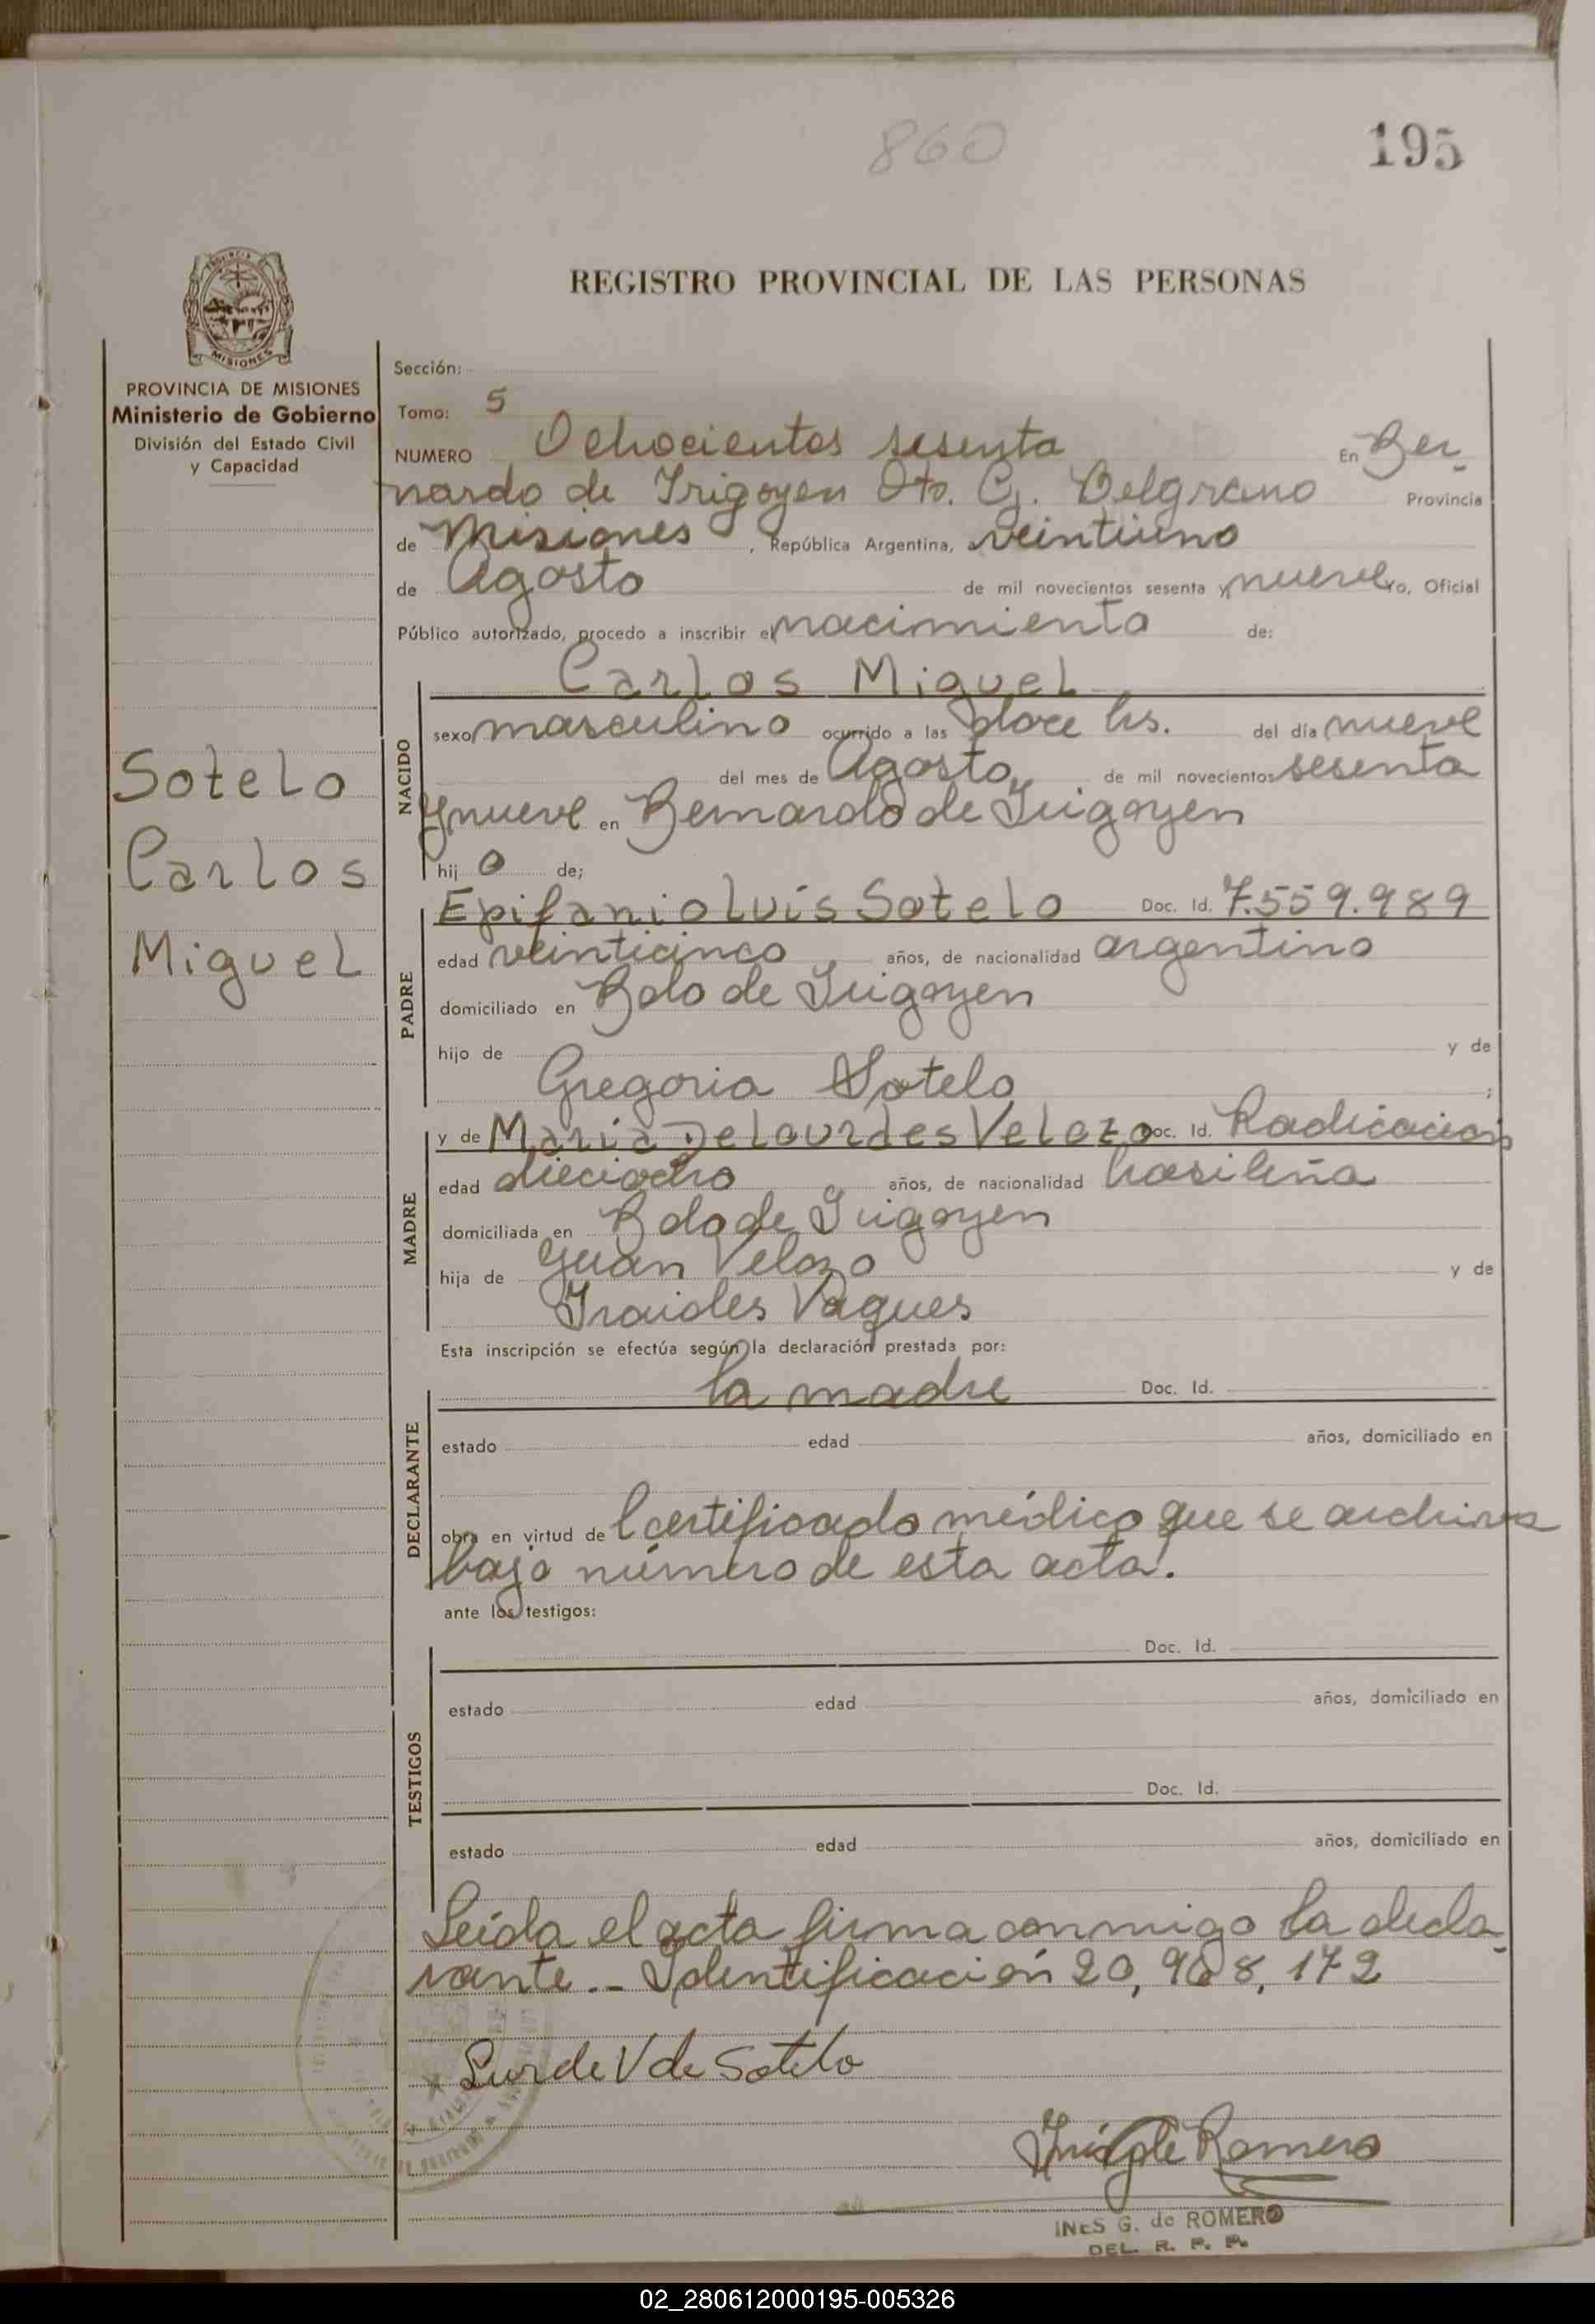 860
195
REGISTRO PROVINCIAL DE LAS PERSONAS
MISIONES
PROVINCIA DE MISIONES
Ministerio de Gobierno
División del Estado Civil
y Capacidad
Sotelo
Carlos
Miguel
Sección:
Tomo: 5
NUMERO Ochocientos sesenta En Ber-
nardo de Irigoyen Dto. Gj. Belgrano Provincia
de Misiones, República Argentina, a veintiuno
de Agosto de mil novecientos sesenta y nueve Yo, Oficial
Público autorizado, procedo a inscribir el nacimiento de:
Carlos Miguel
NACIDO
sexo masculino ocurrido a las doce hs. del día nueve
del mes de Agosto de mil novecientos sesenta
y nueve en Bernardo de Irigoyen
hij o de;
PADRE
Epifanio Luis Sotelo Doc. Id. 7.559.989
edad veinticinco años, de nacionalidad argentino
domiciliado en Bdo de Irigoyen
hijo de y de
Gregoria Sotelo ;
MADRE
y de Maria De Lourdes Velozo Doc. Id. Radicacion
edad dieciocho años, de nacionalidad brasileña
domiciliada en Bdo de Irigoyen
hija de Juan Velozo y de
Iraides Vagues
Esta inscripción se efectúa según la declaración prestada por:
DECLARANTE
la madre Doc. Id.
estado edad años, domiciliado en
obra en virtud de l certificado médico que se archiva
bajo número de esta acta.
ante los testigos:
TESTIGOS
Doc. Id.
estado edad años, domiciliado en
Doc. Id.
estado edad años, domiciliado en
Leída el acta firma conmigo la decla-
rante.- Identificación 20,968,172
x Lurde V de Sotelo
Inés G de Romero
INES G. de ROMERO
DEL. R. P. P.
02_280612000195-005326